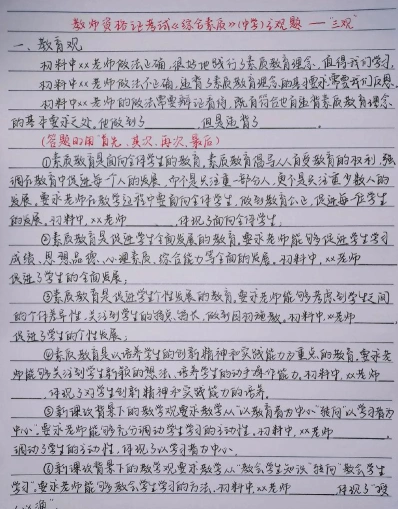 教师资格证考试《综合素质》(中学)主观题 — "三观"
一、教育观
材料中xx老师做法正确,很好地践行了素质教育理念,值得我们学习。
材料中xx老师做法不正确,违背了素质教育理念的基本要求,需要我们反思。
材料中xx老师的做法需要辩证看待,既有符合也有违背素质教育理念
的基本要求之处。他做到了 但是违背了 。
(答题时用首先、其次、再次、最后)
①素质教育是面向全体学生的教育。素质教育倡导人人有受教育的权利,强
调在教育中促进每一个人的发展,而不是只注重一部分人,更不是只注重少数人的
发展。要求老师在教学过程中要面向全体学生,做到教育公正,促进每一位学生
的发展。材料中,xx老师 ,体现了面向全体学生;
②素质教育是促进学生全面发展的教育。要求老师能够促进学生学习
成绩、思想品德、心理素质、综合能力等全面的发展。材料中,xx老师
促进了学生的全面发展;
③素质教育是促进学生个性发展的教育。要求老师能够考虑到学生之间
的个体差异性,关注到学生的特点、特长,做到因材施教。材料中,xx老师 ,
促进了学生的个性发展;
④素质教育是以培养学生的创新精神和实践能力为重点的教育。要求老
师能够关注到学生新颖的想法,培养学生的动手等能力。材料中,xx老师
,体现了对学生创新精神和实践能力的培养。
⑤新课改背景下的教学观要求教学从"以教育者为中心"转向"以学习者为
中心"。要求老师能够充分调动学生学习的主动性。材料中,xx老师 ,
调动了学生的主动性,体现了以学习者为中心。
⑥新课改背景下的教学观要求教学从"教会学生知识"转向"教会学生
学习"。要求老师能够教会学生学习的方法。材料中,xx老师 体现了"授